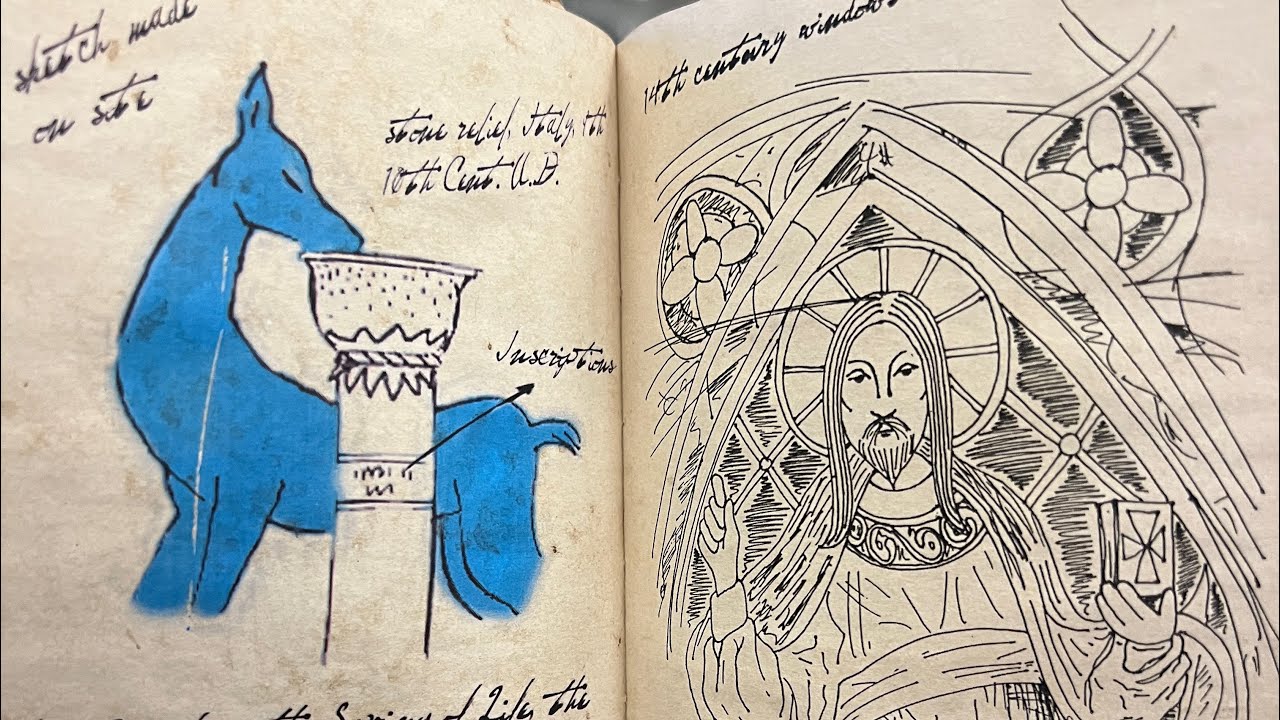 sketch made
on site
stone relief, Italy, 9th
10th Cent. A.D.
Inscriptions
the
14th century windows